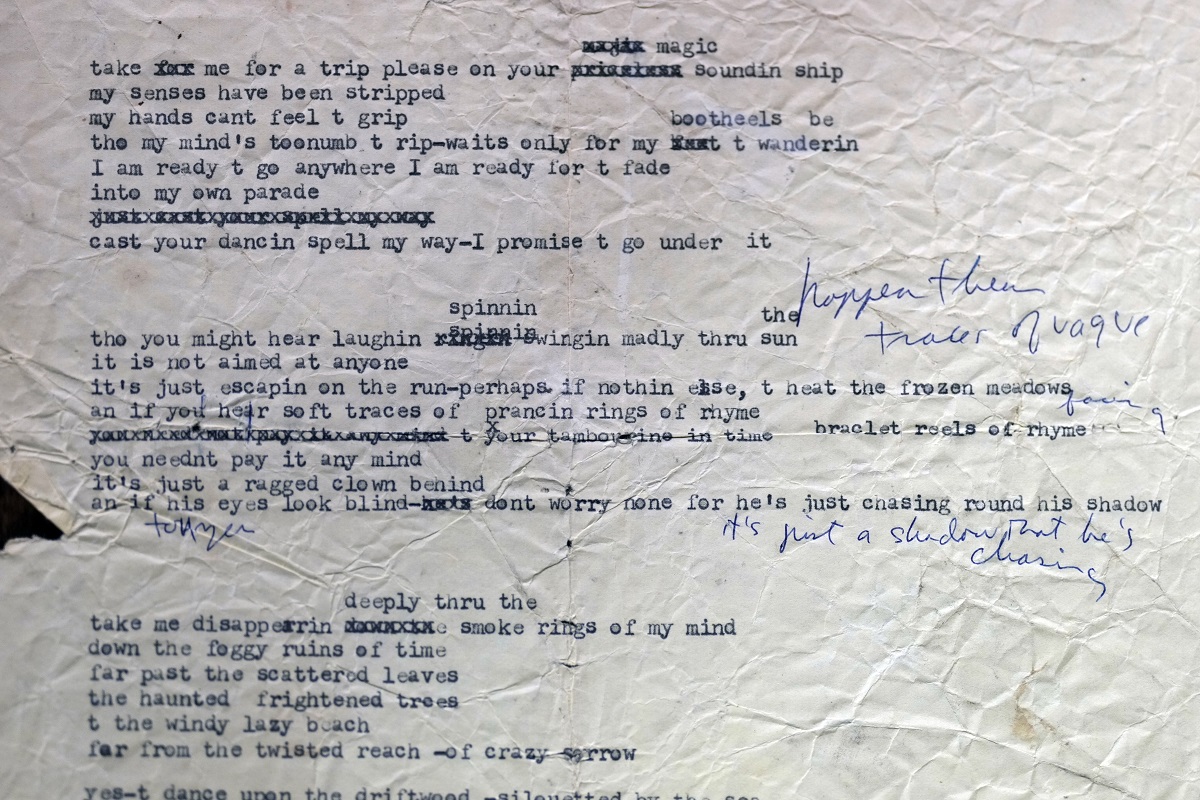 magic
take me for a trip please on your soundin ship
my senses have been stripped
my hands cant feel t grip
bootheels be
tho my mind's toonumb t rip-waits only for my t wanderin
I am ready t go anywhere I am ready for t fade
into my own parade
just cast your spell my way
cast your dancin spell my way-I promise t go under it
spinnin
the
tho you might hear laughin spinnin swingin madly thru sun
traces of vague
it is not aimed at anyone
it's just escapin on the run-perhaps if nothin else, t heat the frozen meadows
an if you hear soft traces of prancin rings of rhyme
t your tambourine in time
braclet reels of rhyme
you neednt pay it any mind
it's just a ragged clown behind
an if his eyes look blind- dont worry none for he's just chasing round his shadow
it's just a shadow that he's
chasing
deeply thru the
take me disapperrin smoke rings of my mind
down the foggy ruins of time
far past the scattered leaves
the haunted frightened trees
t the windy lazy beach
far from the twisted reach -of crazy sorrow
yes-t dance upon the driftwood -silouetted by the sea